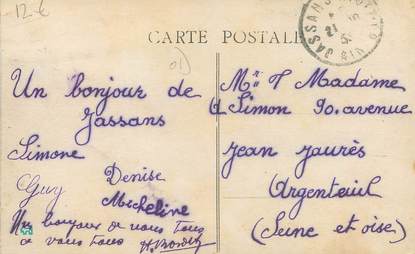 12-€
CARTE POSTALE
JASSANS
21
AIN
Un bonjour de
Jassans
Simone
Denise
Guy
Micheline
Un bonjour de nous tous
a vous tous
Mr & Madame
Simon 90. avenue
Jean Jaurès
Argenteuil
(Seine et oise)